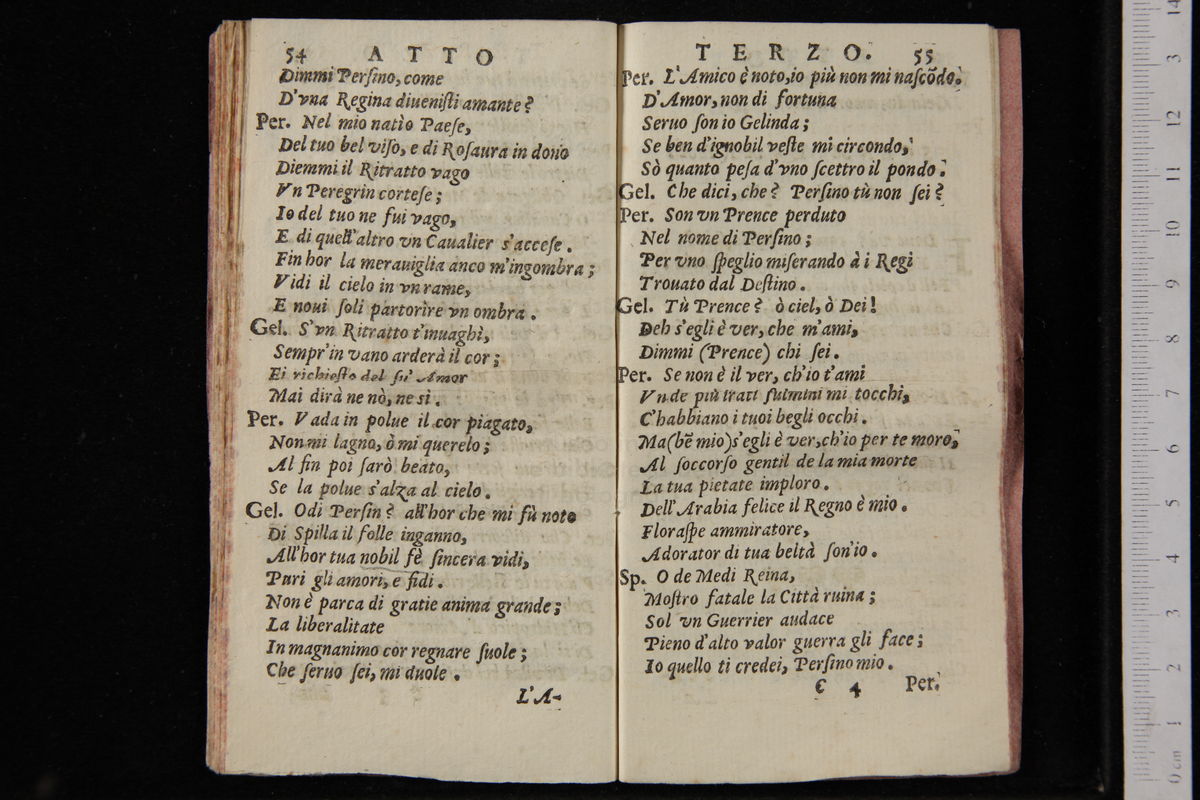 54 ATTO
Dimmi Perſino, come
D'vna Regina diueniſti amante?
Per. Nel mio natìo Paeſe,
Del tuo bel viſo, e di Roſaura in dono
Diemmi il Ritratto vago
Vn Peregrin corteſe;
Io del tuo ne fui vago,
E di quell'altro vn Caualier s'acceſe.
Fin hor la merauiglia anco m'ingombra;
Vidi il cielo in vn rame,
E noui ſoli partorire vn ombra.
Gel. S'vn Ritratto t'inuaghì,
Sempr'in vano arderà il cor;
Ei richieſto del ſu' Amor
Mai dirà ne nò, ne sì.
Per. Vada in polue il cor piagato,
Non mi lagno, ò mi querelo;
Al fin poi ſarò beato,
Se la polue s'alza al cielo.
Gel. Odi Perſin? all'hor che mi fù noto
Di Spilla il folle inganno,
All'hor tua nobil fè ſincera vidi,
Puri gli amori, e fidi.
Non è parca di gratie anima grande;
La liberalitate
In magnanimo cor regnare ſuole;
Che ſeruo ſei, mi duole.
L'A-
TERZO. 55
Per. L'Amico è noto, io più non mi naſcõdo.
D'Amor, non di fortuna
Seruo ſon io Gelinda;
Se ben d'ignobil veſte mi circondo,
Sò quanto peſa d'vno ſcettro il pondo.
Gel. Che dici, che? Perſino tù non ſei?
Per. Son vn Prence perduto
Nel nome di Perſino;
Per vno ſpeglio miſerando à i Regi
Trouato dal Deſtino.
Gel. Tù Prence? ò ciel, ò Dei!
Deh s'egli è ver, che m'ami,
Dimmi (Prence) chi ſei.
Per. Se non è il ver, ch'io t'ami
Vnde più irati fulmini mi tocchi,
C'habbiano i tuoi begli occhi.
Ma (bẽ mio) s'egli è ver, ch'io per te moro,
Al ſoccorſo gentil de la mia morte
La tua pietate imploro.
Dell'Arabia felice il Regno è mio.
Floraſpe ammiratore,
Adorator di tua beltà ſon'io.
Sp. O de Medi Reina,
Moſtro fatale la Città ruina;
Sol vn Guerrier audace
Pieno d'alto valor guerra gli face;
Io quello ti credei, Perſino mio.
C 4 Per.